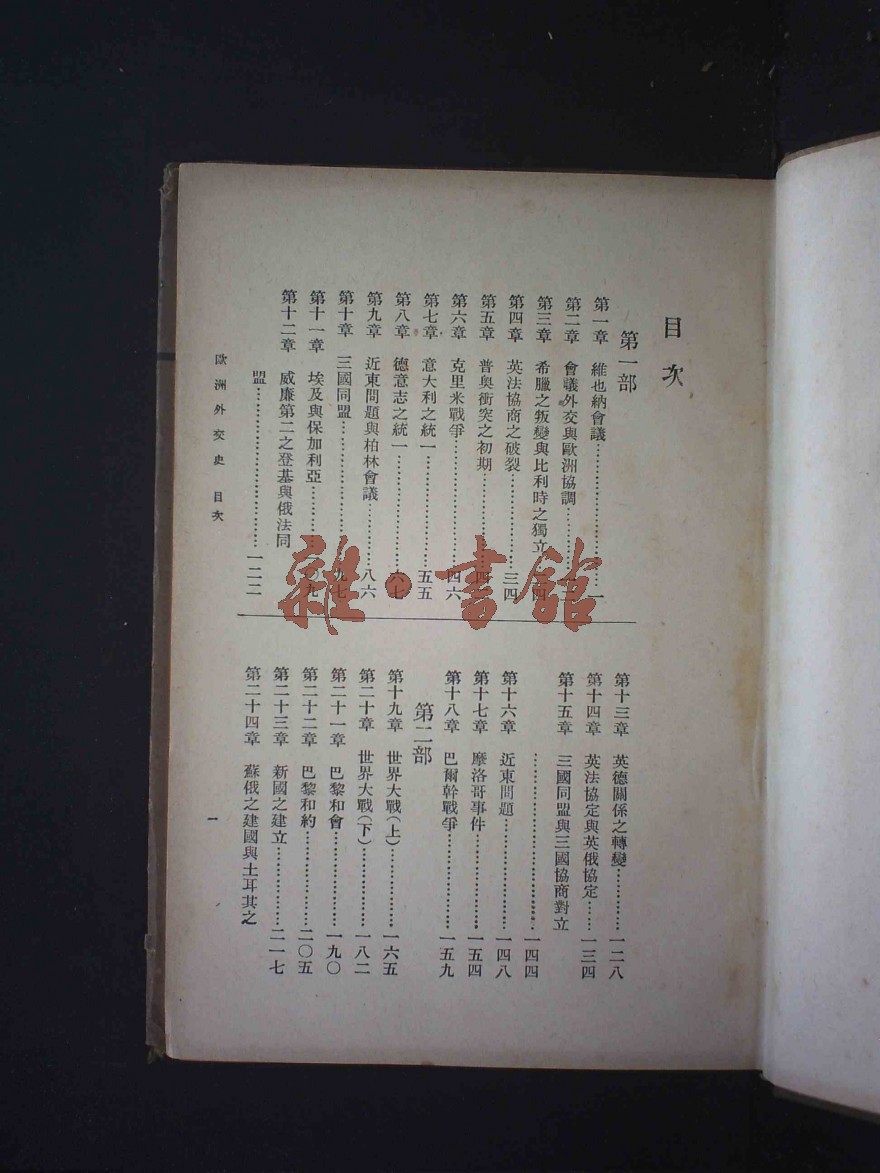 目次
第一部
第一章　維也納會議……一
第二章　會議外交與歐洲協調……一三
第三章　希臘之叛變與比利時之獨立……二四
第四章　英法協商之破裂……三四
第五章　普奧衝突之初期……四一
第六章　克里米戰爭……四六
第七章　意大利之統一……五五
第八章　德意志之統一……六七
第九章　近東問題與柏林會議……八六
第十章　三國同盟……九七
第十一章　埃及與保加利亞……一〇九
第十二章　威廉第二之登基與俄法同
盟……一二二
第十三章　英德關係之轉變……一二八
第十四章　英法協定與英俄協定……一三四
第十五章　三國同盟與三國協商對立
……一四四
第十六章　近東問題……一四八
第十七章　摩洛哥事件……一五四
第十八章　巴爾幹戰爭……一五九
第二部
第十九章　世界大戰(上)……一六五
第二十章　世界大戰(下)……一八二
第二十一章　巴黎和會……一九〇
第二十二章　巴黎和約……二〇五
第二十三章　新國之建立……二一七
第二十四章　蘇俄之建國與土耳其之
歐洲外交史　目次
一
雜·書館